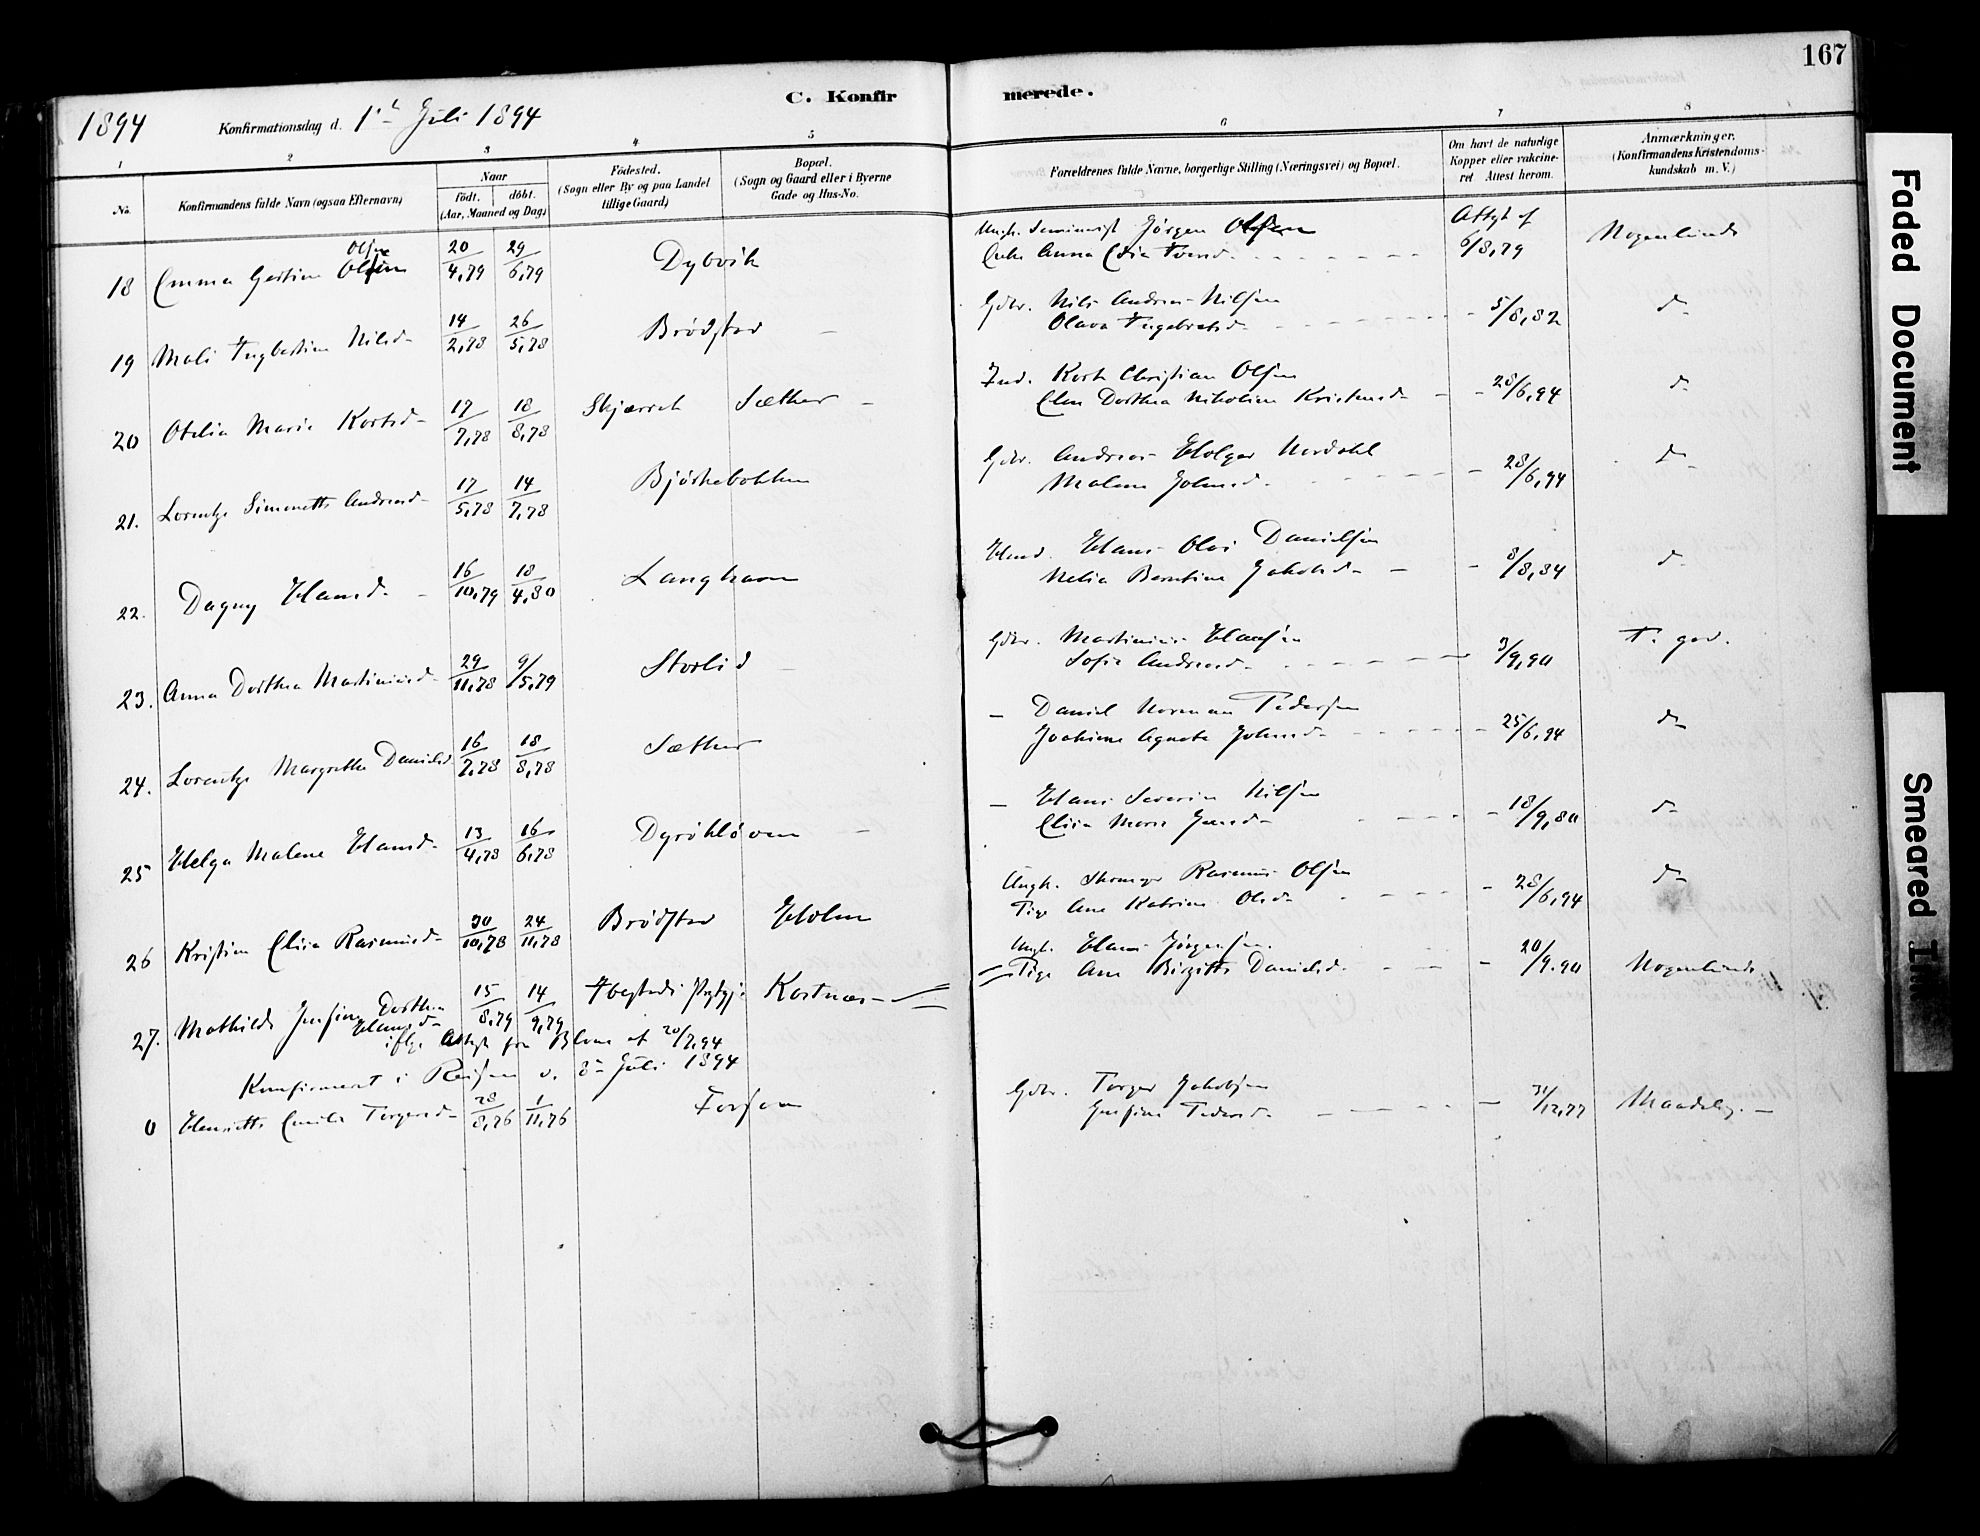 167
C. Konfirmerede.
1894 Konfirmationsdag d. 1ste Juli 1894
1 2 3 4 5 6 7 8
No. Konfirmandens fulde Navn (ogsaa Efternavn) Naar født. døbt. (Aar, Maaned og Dag) Fødested. (Sogn eller By og paa Landet tillige Gaard) Bopæl. (Sogn og Gaard eller i Byerne Gade og Hus-No. Forældrenes fulde Navne, borgerlige Stilling (Næringsvei) og Bopæl. Om havt de naturlige Kopper eller vakcineret Attest herom. Anmærkninger. (Konfirmandens Kristendomskundskab m. V.)
Olsen Ungk. Jørgen Olsen Attest af
18 Emma Olsen 20/4,79 29/6,79 Dybvik Enke Anna 6/8,79 Nogenlunde
Gdbr. Nils Andreas Nilsen
19 Mali Nilsd. 14/2,78 26/5,78 Brødstad Olava Ingebretsd. 5/8,82 d
Ind. Kort Christian Olsen
20 Otelia Marie Kortsd. 17/7,78 18/8,78 Sæther Elen Dorthea Nikoline Kristensd. 28/6,94 d
Gdbr. Andreas Holger Nordahl
21. Lorentze Simonette Andreasd. 17/5,78 14/7,78 Bjørkebakken Malene Johnsd. 28/6,94 d
Hans Olai Danielsen
22. Dagny Hansd. 16/10,79 18/4,80 Langhavn Nelia Berntine Jakobsd. 8/8,84 d
Gdbr. Martinius Hansen
23. Anna Dorthea Martiniusd. 29/11,78 9/5,79 Storlid Sofie Andreasd. 3/9,90 T. god.
Daniel Norman Pedersen
24. Lorentze Margrethe Danielsd. 16/7,78 18/8,78 Sæther Joakime Agnete Johnsd. 25/6,94 d
Hans Severin Nilsen
25 Helga Malene Hansd. 13/4,78 16/6,78 Dyrøkløven Elisa Marie Jensd. 18/9,80 d
Ungk. Rasmus Olsen
26 Kristine Elisa Rasmusd. 30/10,78 24/11,78 Brødstad Holm Pige Ane Katrine Olsd. 28/6,94 d
Ungk. Hans Jørgensen
27. Mathilde Jensine Dorthea Hansd. 15/8,79 14/9,79 Ibestads Kastnæs Pige Ane Birgitte Danielsd. 20/9.90 Nogenlunde
iflge Attest fra af 20/7,94
Konfirmeret i d. 8de Juli 1894
Gdbr. Torger Jakobsen
0 Henriette Emilie Torgersd. 28/8,76 1/11,76 Forsøen Jensine Pedersd. 31/12,77 Maadelig.
Faded Document
Smeared Ink